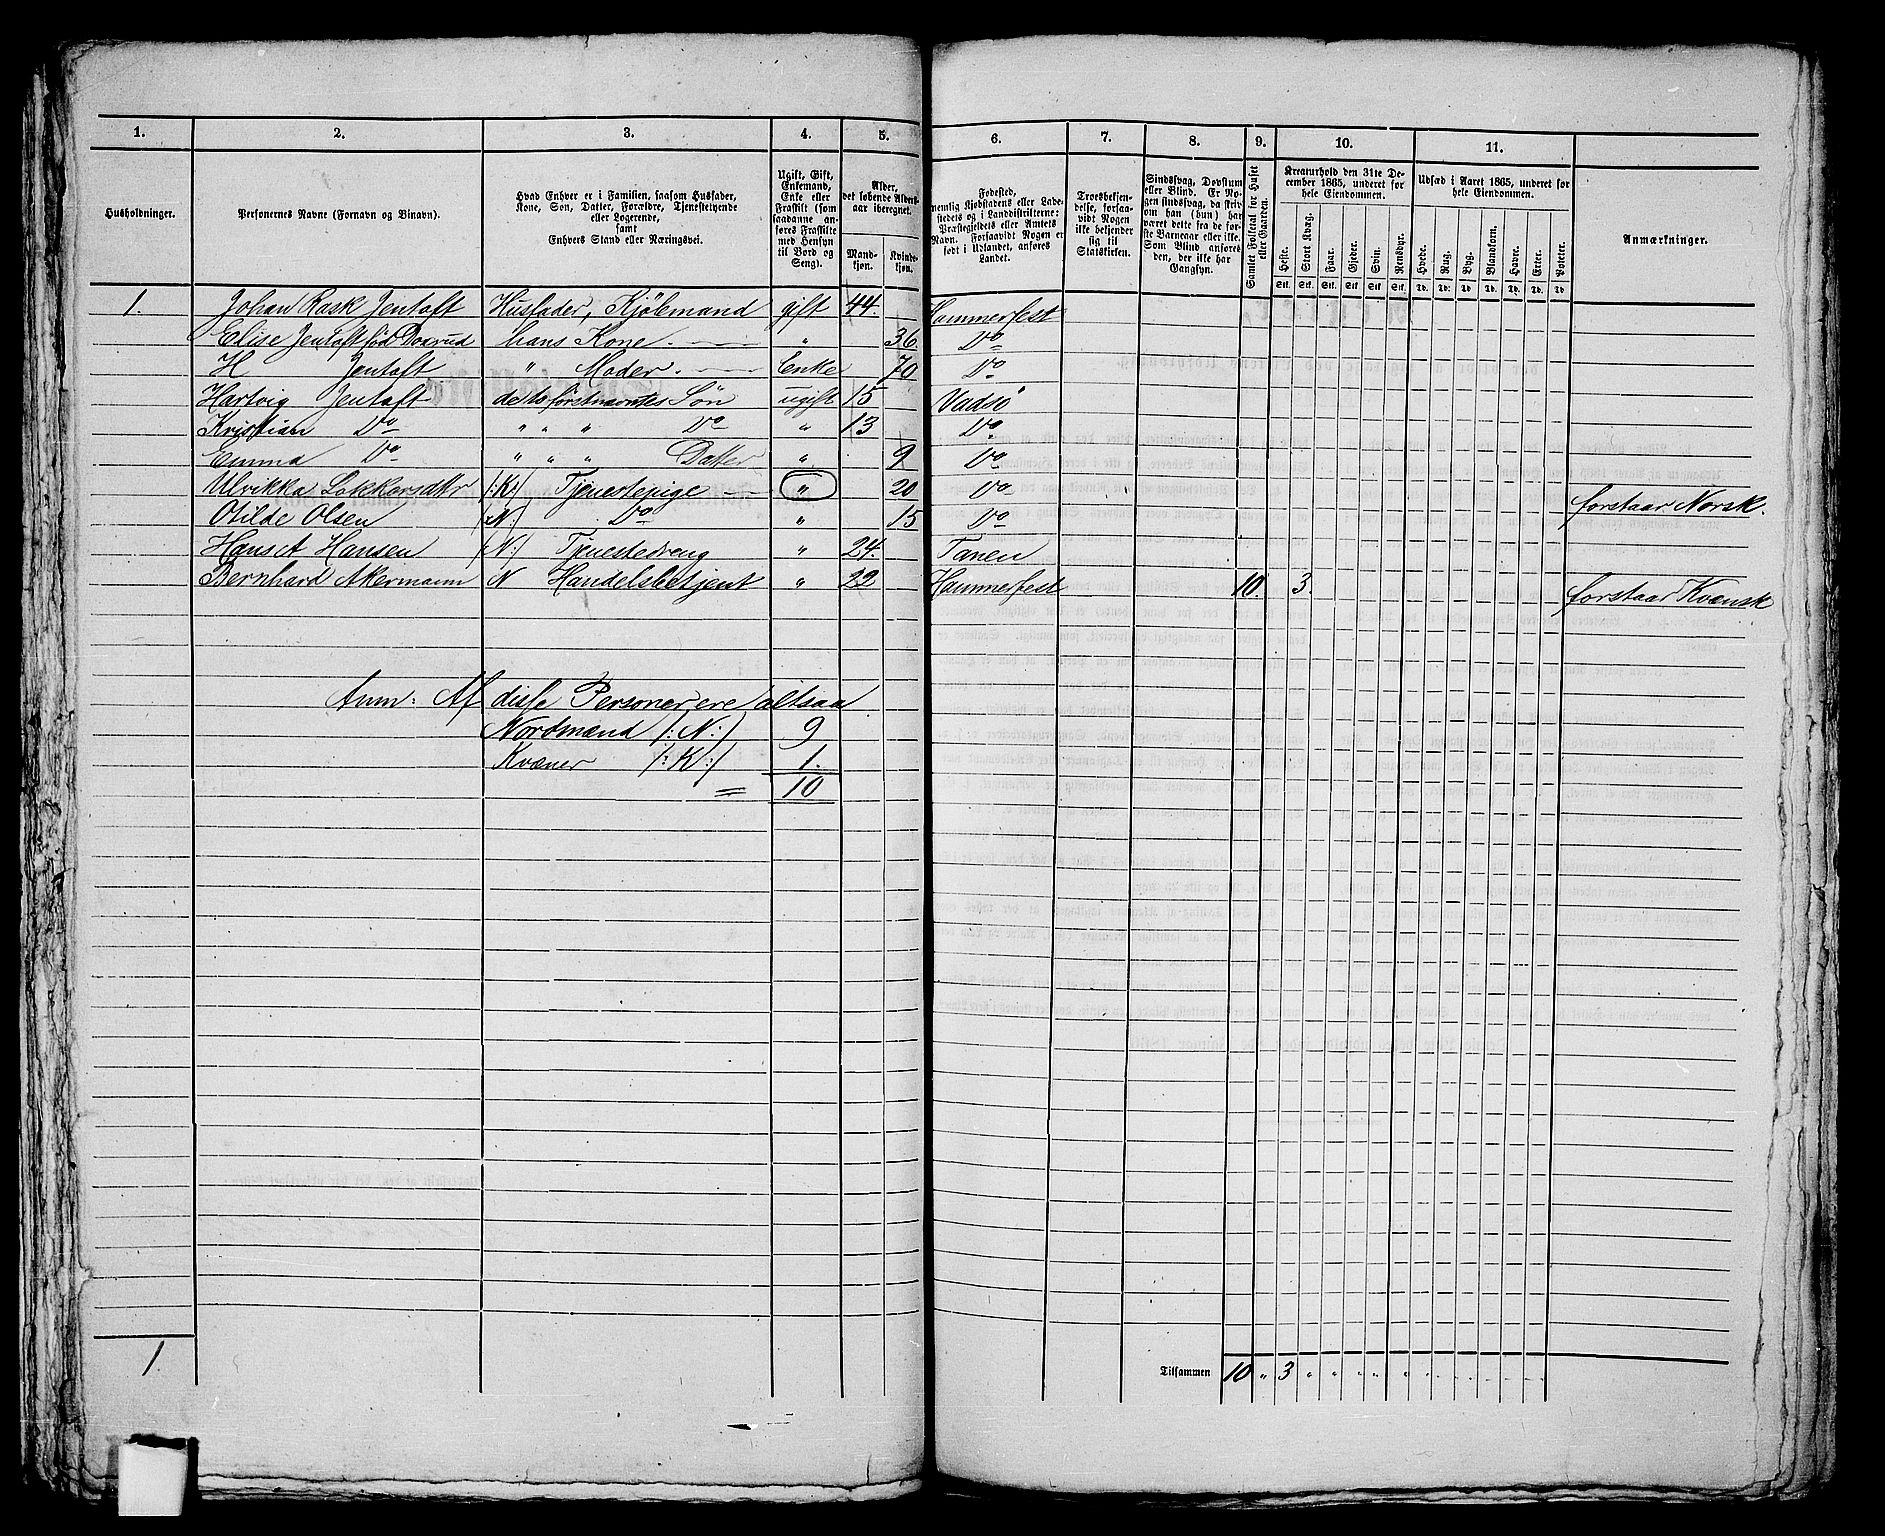 1. 2. 3. 4. 5. 6. 7. 8. 9. 10. 11.
Husholdninger.
Personernes Navne (Fornavn og Binavn).
Hvad Enhver er i Familien, saasom Husfader,
Kone, Søn, Datter, Forældre, Tjenestetyende
eller Logerende,
samt
Enhvers Stand eller Næringsvei.
Ugift, Gift,
Enkemand,
Enke eller
Fraskilt (som
saadanne an-
føres Fraskilte
med Hensyn
til Bord og
Seng).
Alder,
det løbende Alders-
aar iberegnet.
Mand-
kjøn.
Kvinde-
kjøn.
Fødested,
nemlig Kjøbstadens eller Lade-
stedets og i Landdistrikterne:
Præstegjeldets eller Amtets
Navn. Forsaavidt Nogen er
født i Udlandet, anføres
Landet.
Troesbekjen-
delse, forsaa-
vidt Nogen
ikke bekjender
sig til
Statskirken.
Sindssvag, Døvstum
eller Blind. Er No-
gen sindssvag, da skriv
om han (hun) har
været dette fra de før-
ste Barneaar eller ikke.
Som Blind anføres
den, der ikke har
Gangsyn.
Samlet Folketal for Huset
eller Gaarden.
Kreaturhold den 31te De-
cember 1865, underet for
hele Eiendommen.
Heste. Stort Kvæg. Faar. Gjeder. Svin. Rensdyr.
Stk. Stk. Stk. Stk. Stk. Stk.
Udsæd i Aaret 1865, underet for
hele Eiendommen.
Hvede. Rug. Byg. Blandkorn. Havre. Erter. Poteter.
Td. Td. Td. Td. Td. Td. Td.
Anmærkninger.
1. Johan Rask Jentoft Husfader, Kjøbmand gift 44. Hammerfest
Elise Jentoft fød Doxrud hans Kone. " 36. Do
H Jentoft " Moder. Enke 70 Do
Hartvig Jentoft de to førstnævntes Søn ugift 15 Vadsø
Kristian Do " " " Do " 13 Do
Emma Do " " " Datter " 9 Do
Ulrikka Lokkarsdtr (:K:) Tjenestepige " 20 Do forstaar Norsk.
Otilde Olsen (:N:) Do " 15 Do
Hans A Hansen (:N:) Tjenestedreng " 24. Tanen
Bernhard Akermann N Handelsbetjent " 22 Hammerfest 10. 3. forstaar Kvænsk
Anm: Af disse Personer ere altsaa
Nordmænd /:N:/ 9
Kvæner /:K:/ 1.
= 10
1.
Tilsammen 10 " 3 " " " " " " " " " "